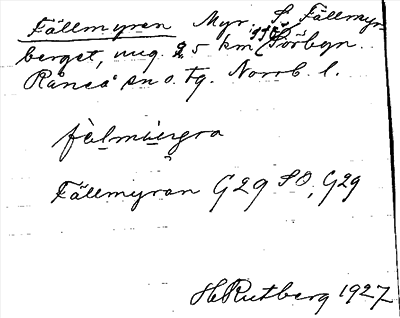 Fällmyren Myr S Fällmyr-
berget, ung 2,5 km SSO Törbyn
Råneå sn o. tg. Norrb. l.
Fällmyran G29 SO, G29
H Rutberg 1927